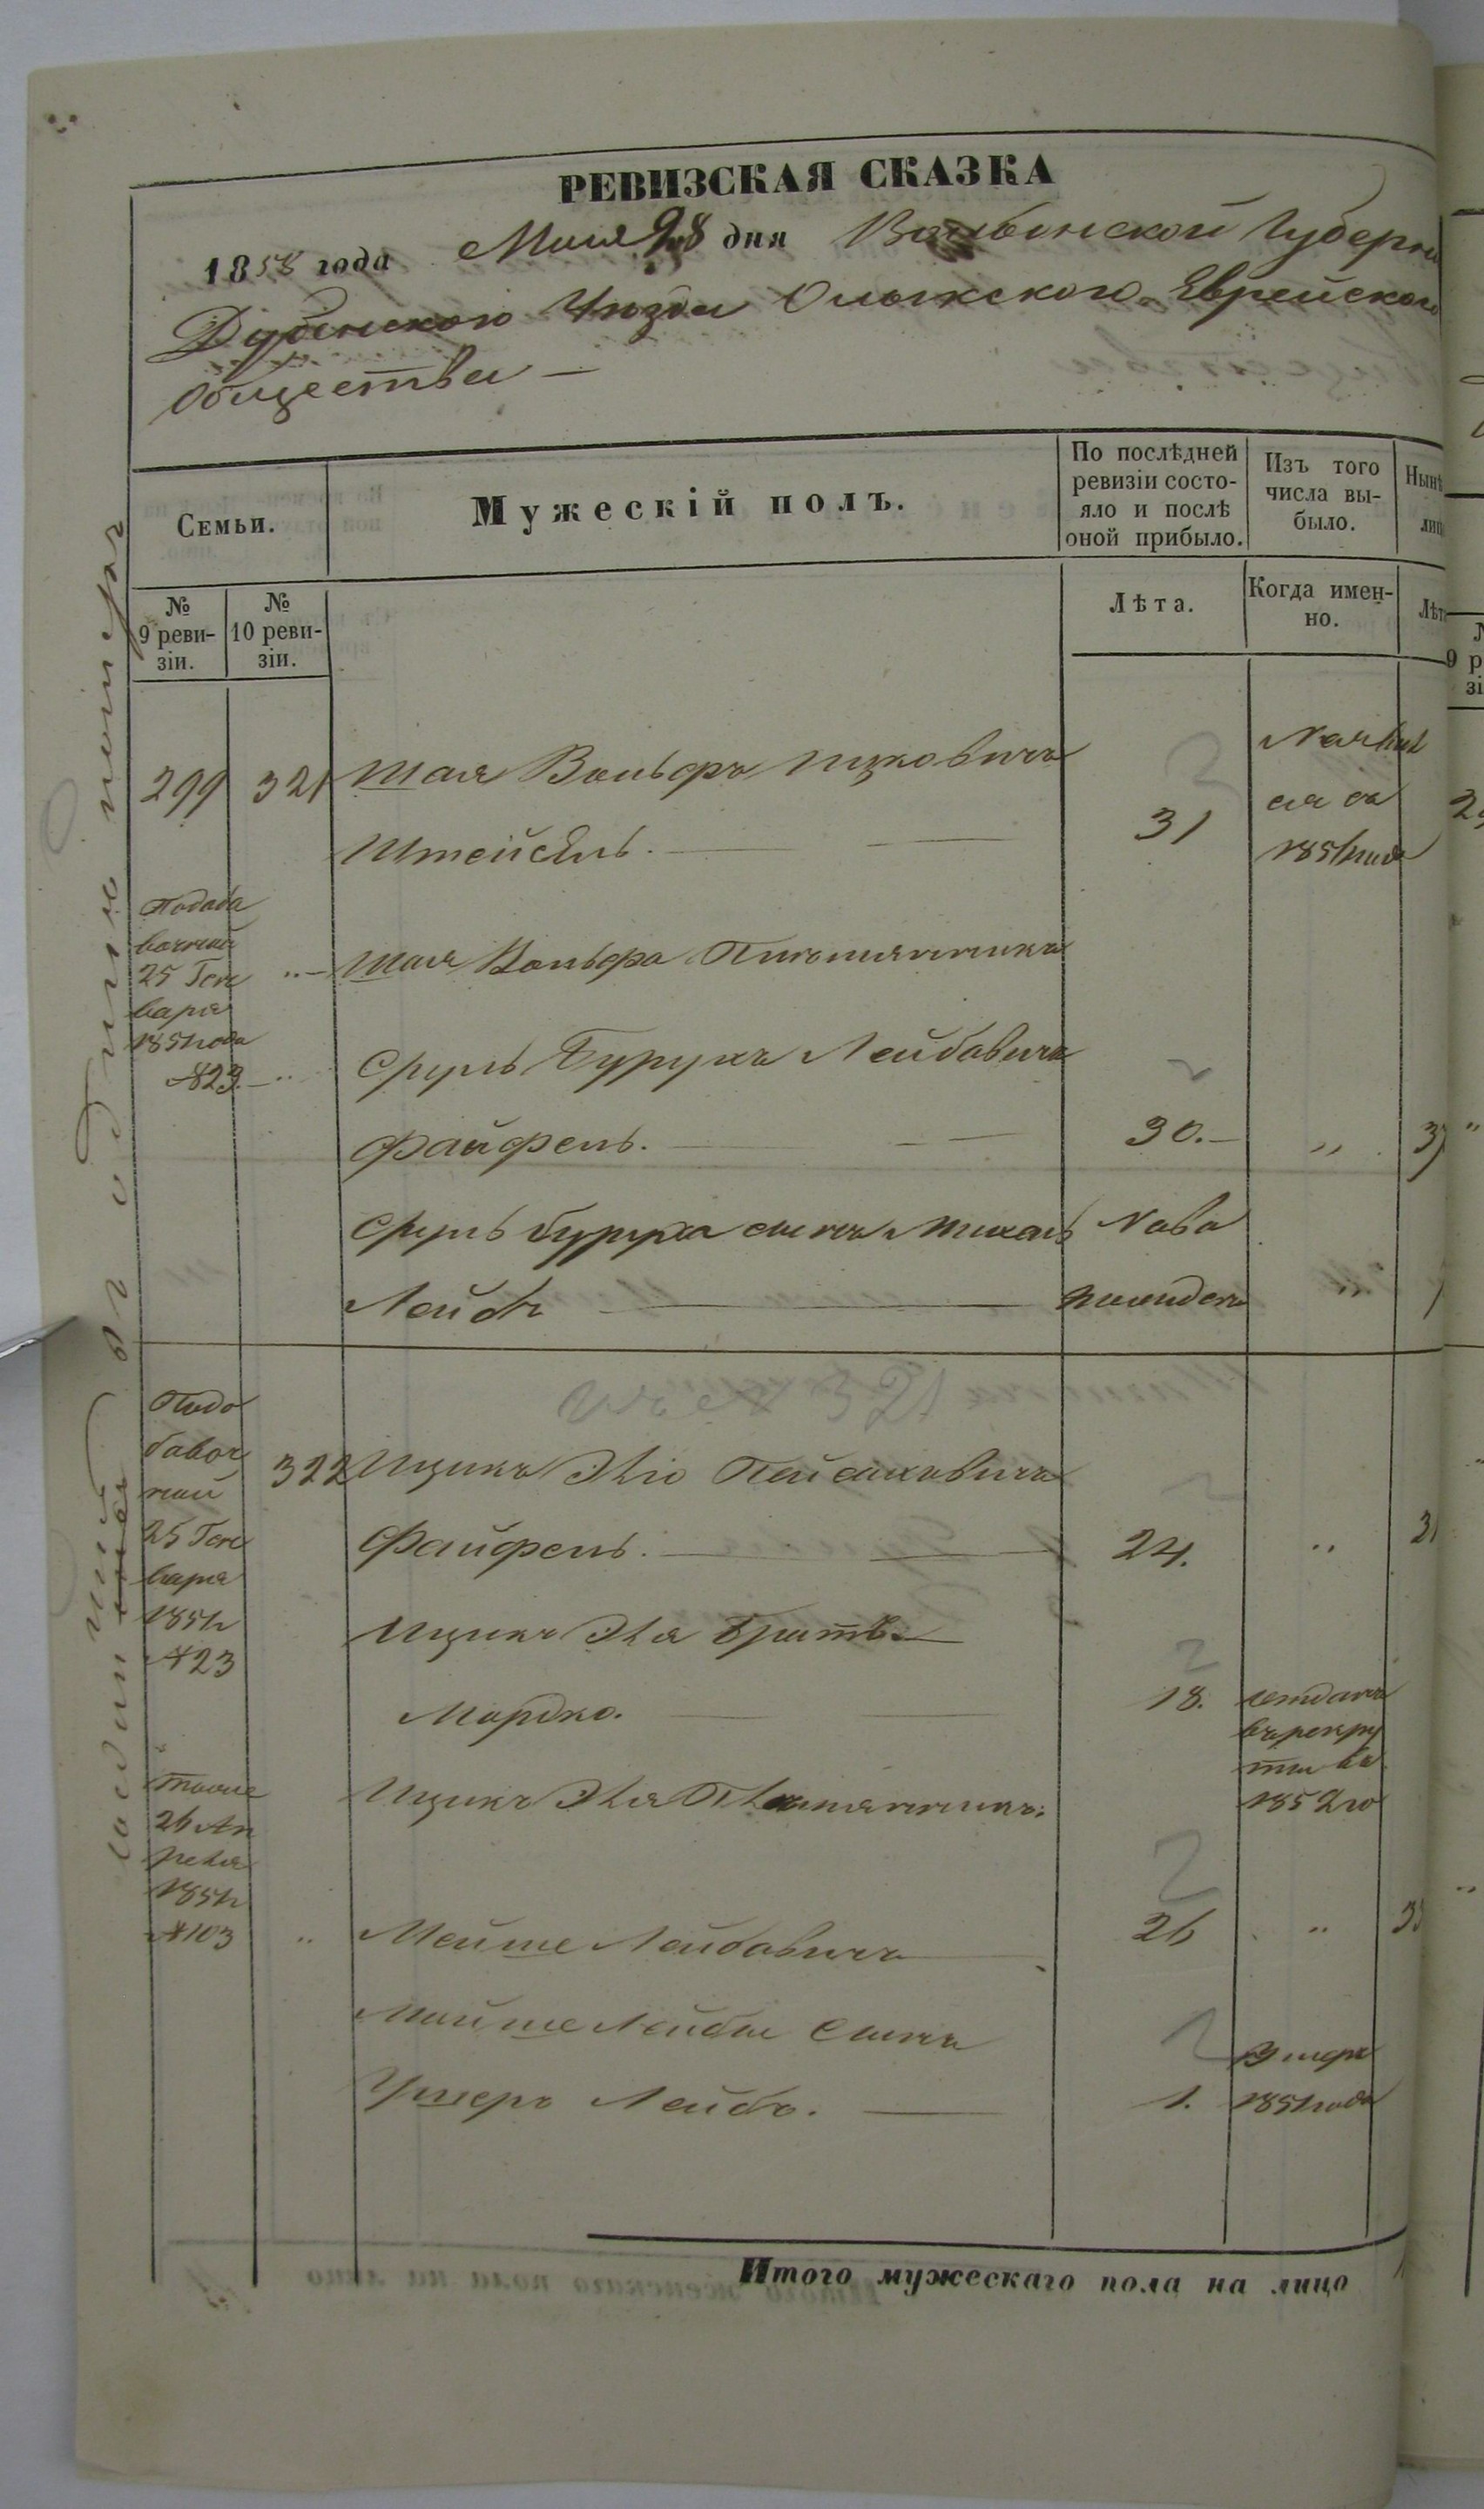 РЕВИЗСКАЯ СКАЗКА
1858 года Мая 28 дня Волынской Губерніи
Дубенского Уѣзда Олыкского Еврейского
Общества —
Семьи.
Мужескій полъ.
По послѣдней
ревизіи состо-
яло и послѣ
оной прибыло.
Изъ того
числа вы-
было.
Нынѣ
лиц
№
9 реви-
зіи.
№
10 реви-
зіи.
Лѣта.
Когда имен-
но.
Лѣт
299 321 Шая Вольфъ Ицковичъ
Штейсель. 31
ся съ
1851 года
25 Ген
варя
1851 года
№ 23.
Шая Вольфа Племянникъ
Сруль Бурухъ Лейбовичъ
Файфель. 30. „ 37
Сруль Буруха сынъ Михель Ново
Лейбъ рожденъ „
Подо
бавоч
ный
25 Ген
варя
1851
№ 23
322 Ицикъ Эліо Пейсаховичъ
Файфель. 24. „ 31
Ицикъ Эля братъ
Мордко. 18. отданъ
въ рекру
ты въ
1852 го
тоже
26 Ап
реля
1851
№ 103
Ицикъ Эля Племянникъ
Мейше Лейбовичъ 26 „ 33
Мейше Лейбы сынъ
Ушеръ Лейбъ. 1. Умеръ
1851 года
Итого мужескаго пола на лицо